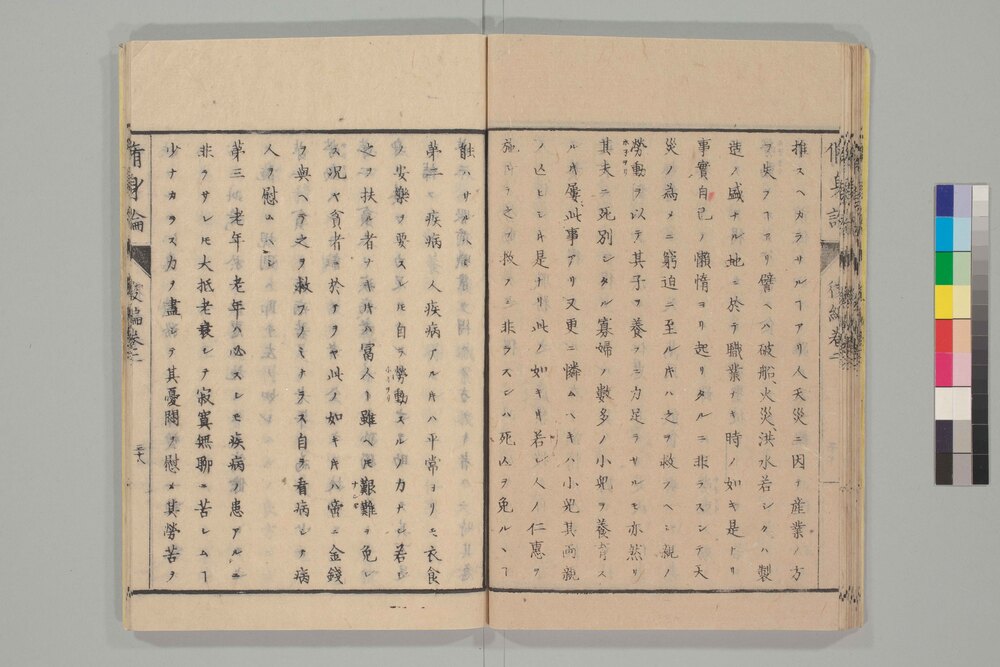 推スヘカラサルヿアリ人天災ニ因テ産業ノ方
ヲ失フヿアリ譬ヘハ破船、火災、洪水若シクハ製
造ノ盛ナル地ニ於テ職業ナキ時ノ如キ是ナリ
事實自己ノ懶惰ヨリ起リタルニ非ラスシテ天
災ノ為メニ窮迫ニ至ル𪜈ハ之ヲ救フヘシ親ノ
勞動ヲ以テ其子ヲ養フニ力足ラサルモ亦然リ
其夫ニ死別シタル寡婦ノ數多ノ小兒ヲ養育ス
ルキ屢此事アリ又更ニ憐ムヘキハ小兒其両親
ノ亡ヒシキ是ナリ此ノ如キキ若シ人ノ仁惠ヲ
施シテ之ヲ救フニ非ラスンハ死亡ヲ免ルヽヿ
能ハサルヘシ
第二 疾病 人疾病アルキハ平常ヨリモ衣食
ノ安樂ヲ要スレ𪜈自ラ勞動スルノ力ナシ若シ
之ヲ扶クル者ナキキハ冨人ト雖ヘ𪜈艱難ヲ免レ
ス况ヤ貧者ニ於テヲヤ此ノ如キキハ啻ニ金錢
ヲ與ヘテ之ヲ救フノミナラス自ラ看病シテ病
人ヲ慰ムヘシ
第三 老年 老年ハ必スシモ疾病ノ患アルニ
非ラサレ𪜈大抵老衰シテ寂寞無聊ニ苦シムヿ
少ナカラス力ヲ盡シテ其憂悶ヲ慰メ其勞苦ヲ
脩身論 後編卷二
三十八